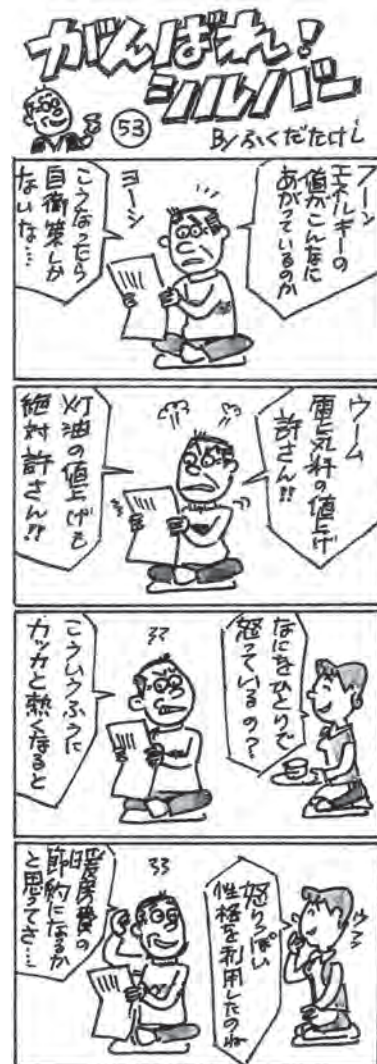 がんばれ!
シルバー
53
By ふくだたけし
フーン
エネルギーの
値がこんなに
あがっているのか
ヨーシ
こうなったら
自衛策しか
ないな…
ウーム
電気料の値上げ
許さん!!
灯油の値上げも
絶対許さん!!
なにをひとりで
怒っているの?
こういうふうに
カッカと熱くなると
ウフフ
怒りっぽい
性格を利用したのね
暖房費の
節約になるか
と思ってさ…